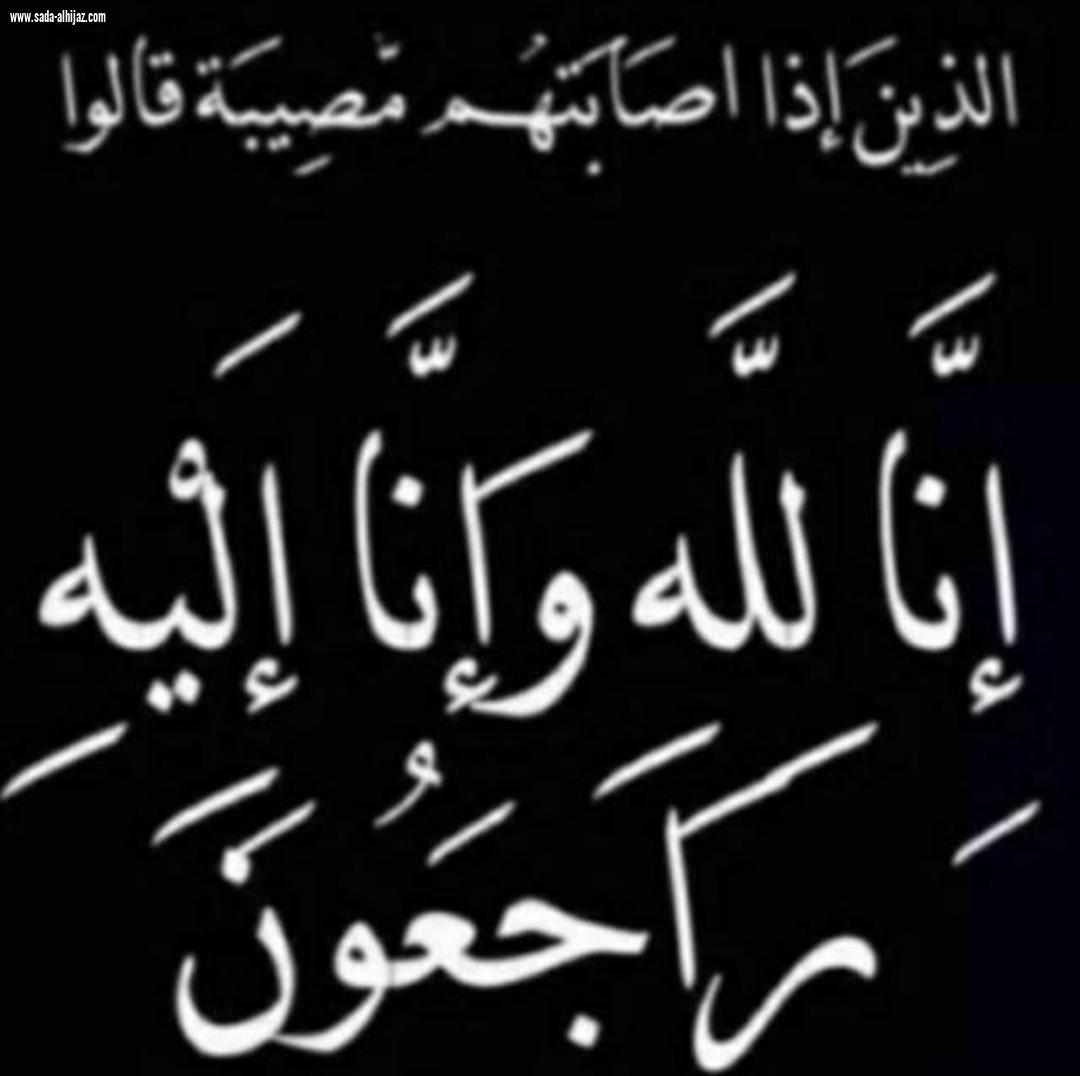 www.sada-alhijaz.com
الذِينَ إِذَا اصَابَتهُم مَّصِيبَة قالوا
إِنَّا للَّه وَإِنَّا إِلَيْهِ
رَاجَعُونَ